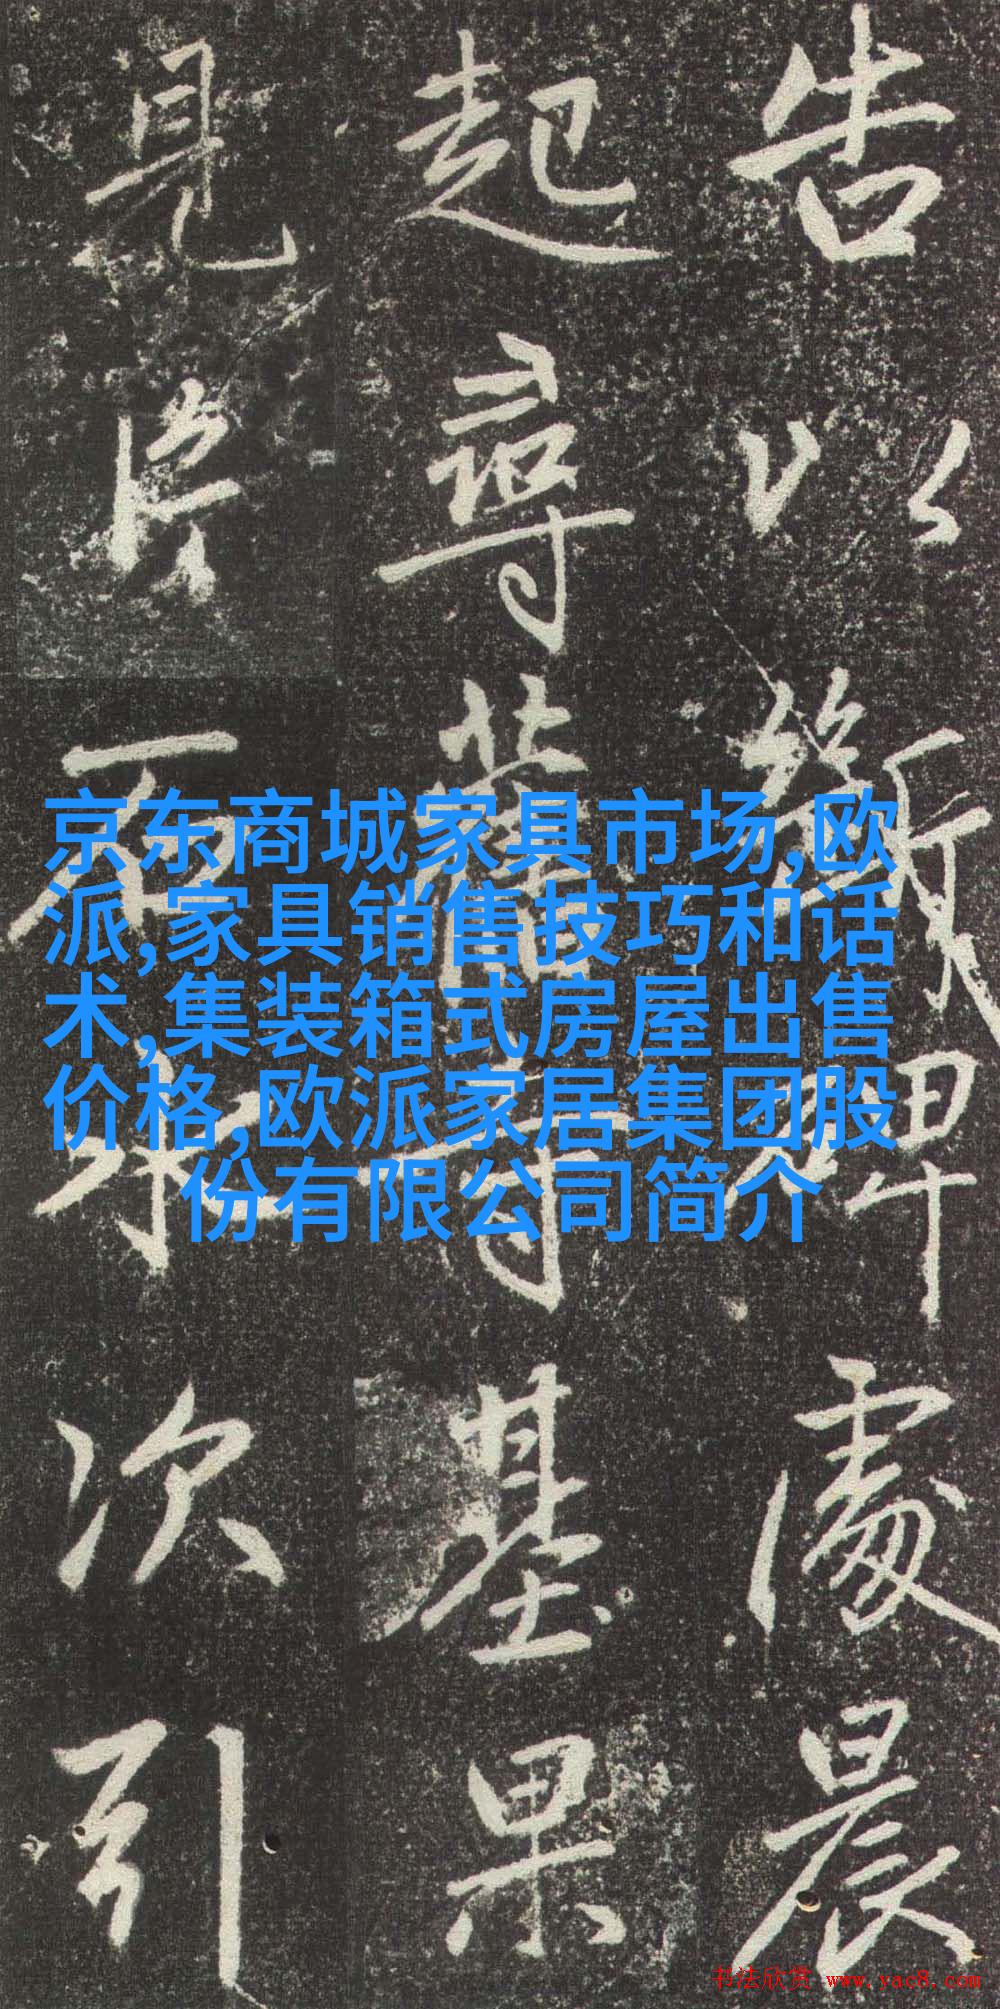 告以碑處晨
起尋舊寺基果
見片石次引
京东商城家具市场,欧
派,家具销售技巧和话
术,集装箱式房屋出售
价格,欧派家居集团股
份有限公司简介
书法欣赏 www.yac8.com